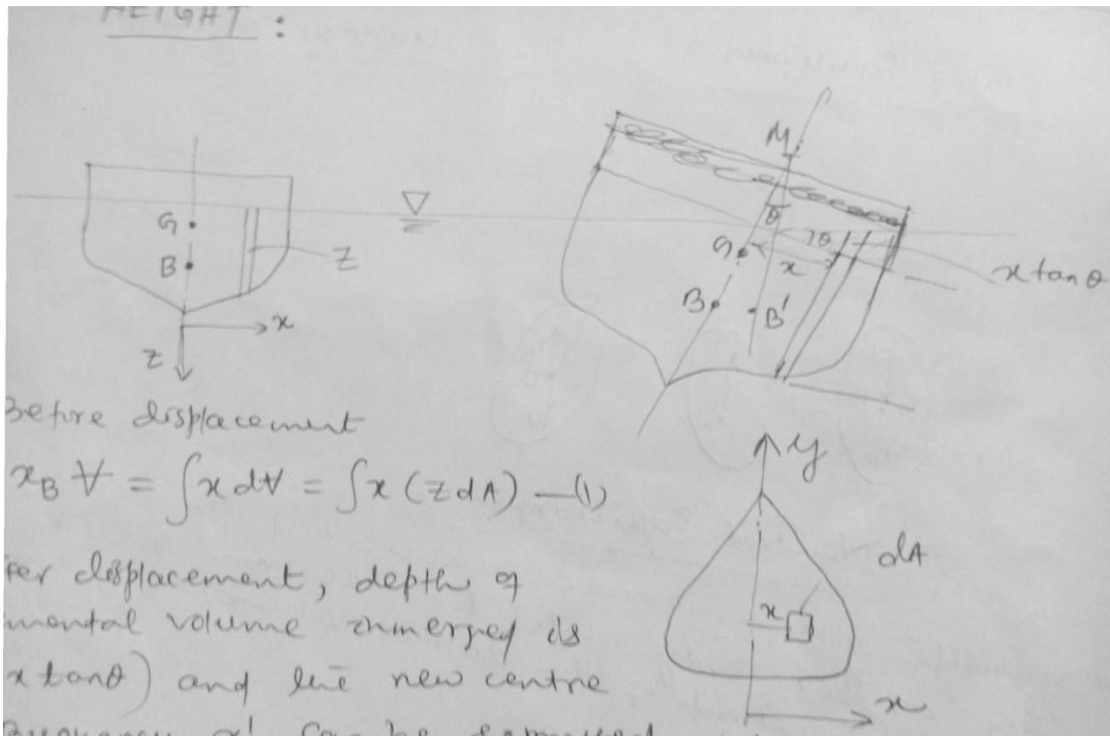 HEIGHT :
G
B
z
x
z
M
θ
G
x
θ
x tan θ
B
B'
Before displacement
x_B V = ∫x dV = ∫x (z dA) —(1)
y
dA
x
x
ter displacement, depth of
mental volume immersed is
x tanθ) and the new centre
x' can be expressed